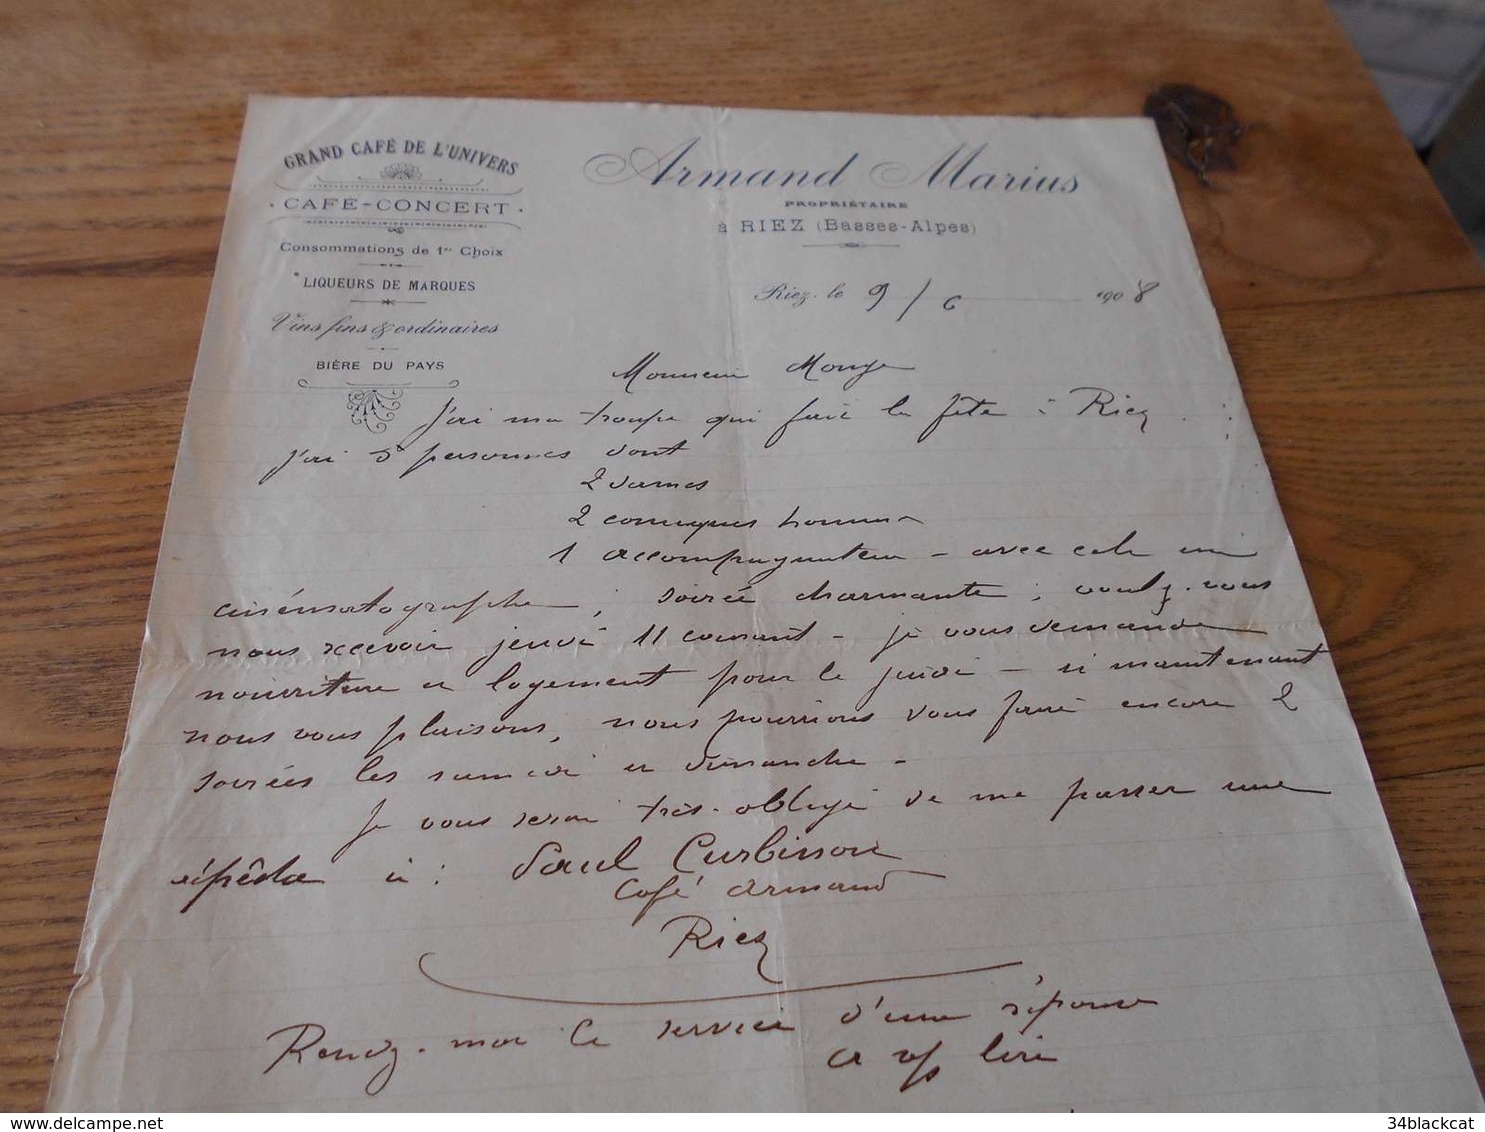 GRAND CAFÉ DE L'UNIVERS
CAFÉ-CONCERT
Consommations de 1er Choix
LIQUEURS DE MARQUES
Vins fins & ordinaires
BIÈRE DU PAYS
Armand Marius
PROPRIÉTAIRE
à RIEZ (Basses-Alpes)
Riez, le 9/6 1908
Monsieur Monge
J'ai ma troupe qui fait la fête à Riez
J'ai 5 personnes dont
2 dames
2 comiques hommes
1 accompagnateur - avec cela un
cinématographe ; soirée charmante ; voulez-vous
nous recevoir jeudi 11 courant - je vous demande
nourriture et logement pour le jeudi - si maintenant
nous vous plaisons, nous pourrions vous faire encore 2
soirées les samedi et dimanche -
Je vous serai très-obligé de me passer une
dépêche à : Paul Curbisson
Café Armand
Riez
Rendez-moi le service d'une réponse
34blackcat
delcampe.net